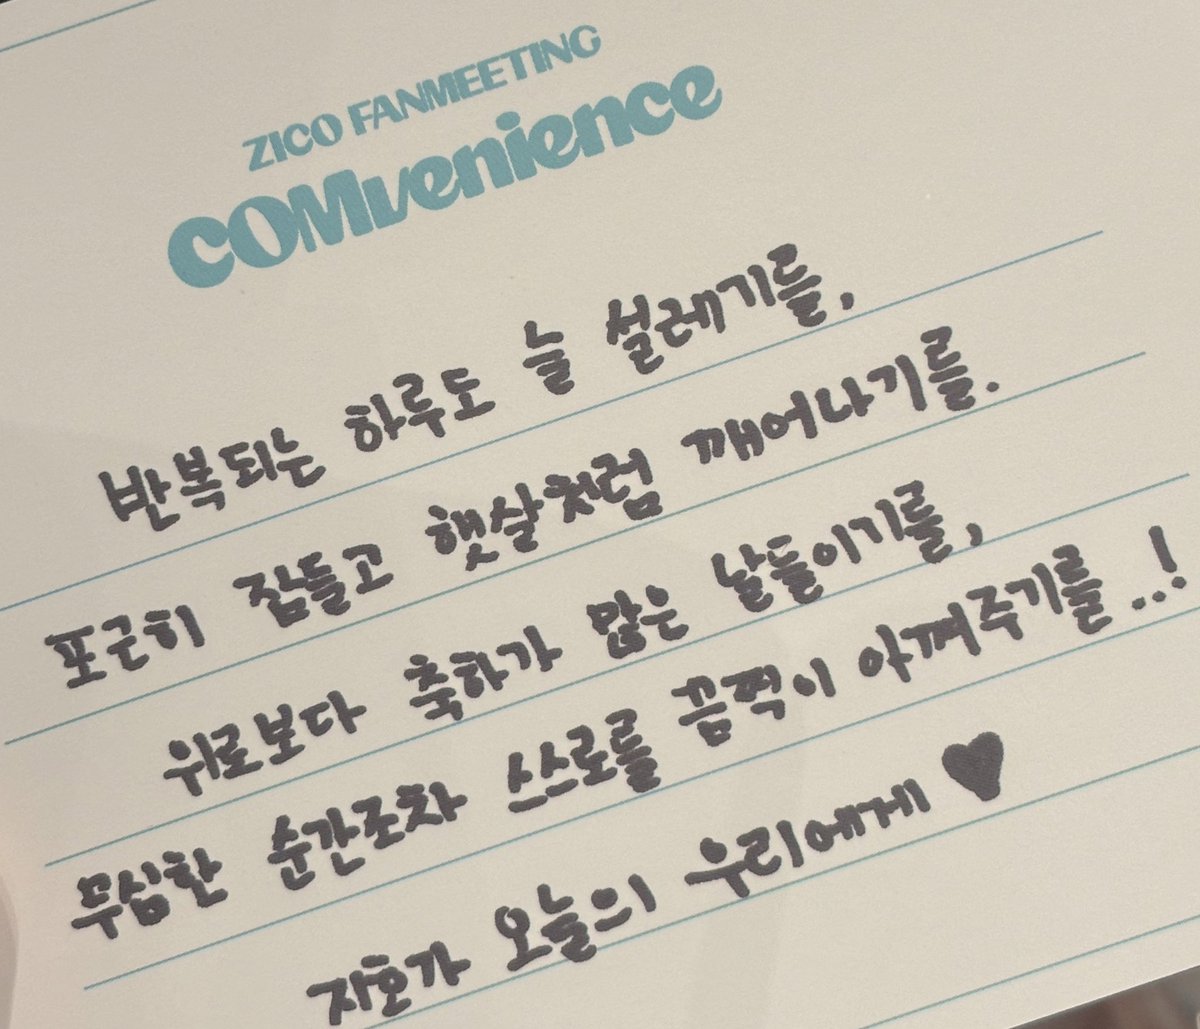 ZICO FANMEETING
COMvenience
반복되는 하루도 늘 설레기를,
포근히 잠들고 햇살처럼 깨어나기를.
위로보다 축하가 많은 날들이기를,
무심한 순간조차 스스로를 끔찍이 아껴주기를..!
지호가 오늘의 우리에게 ♥